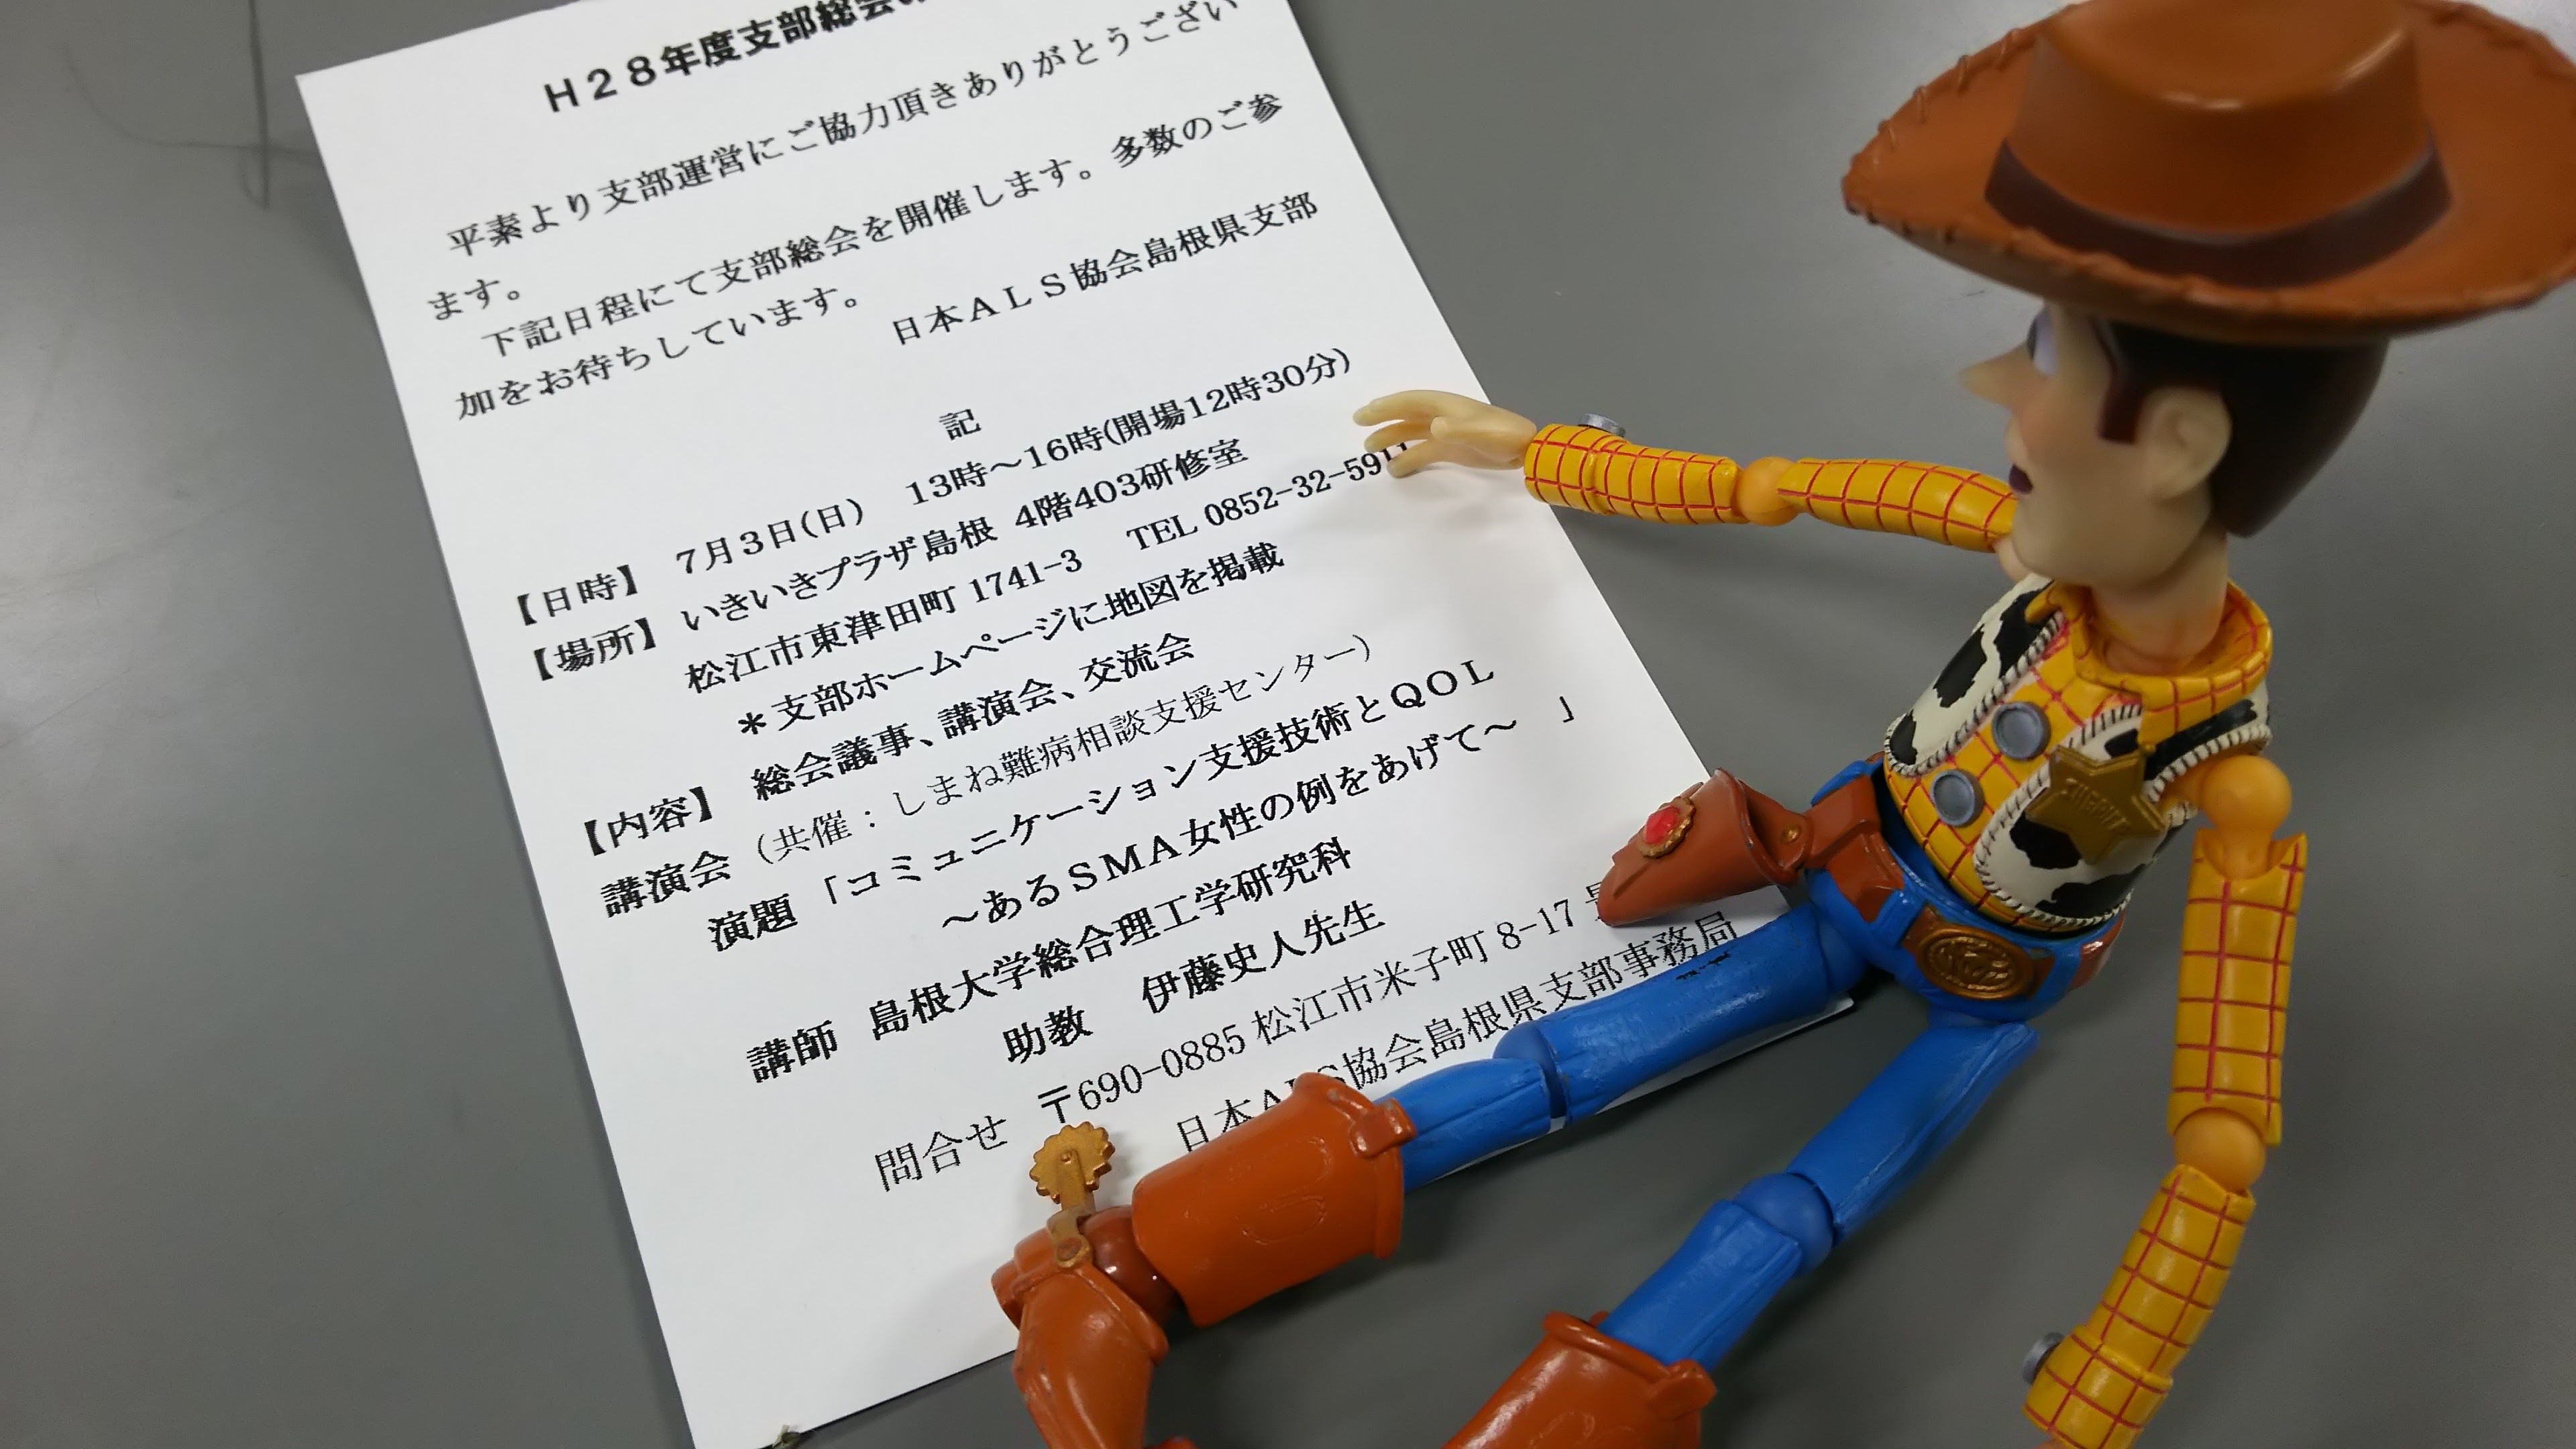 H28年度支部総会
平素より支部運営にご協力頂きありがとうござい
ます。
下記日程にて支部総会を開催します。多数のご参
加をお待ちしています。
日本ALS協会島根県支部
記
【日時】 7月3日(日) 13時～16時(開場12時30分)
【場所】 いきいきプラザ島根 4階403研修室
松江市東津田町 1741-3 TEL 0852-32-5911
＊支部ホームページに地図を掲載
【内容】 総会議事、講演会、交流会
講演会 (共催：しまね難病相談支援センター)
演題 「コミュニケーション支援技術とQOL
～あるSMA女性の例をあげて～ 」
講師 島根大学総合理工学研究科
助教 伊藤史人先生
問合せ 〒690-0885 松江市米子町 8-17
日本ALS協会島根県支部事務局
SHERIFF